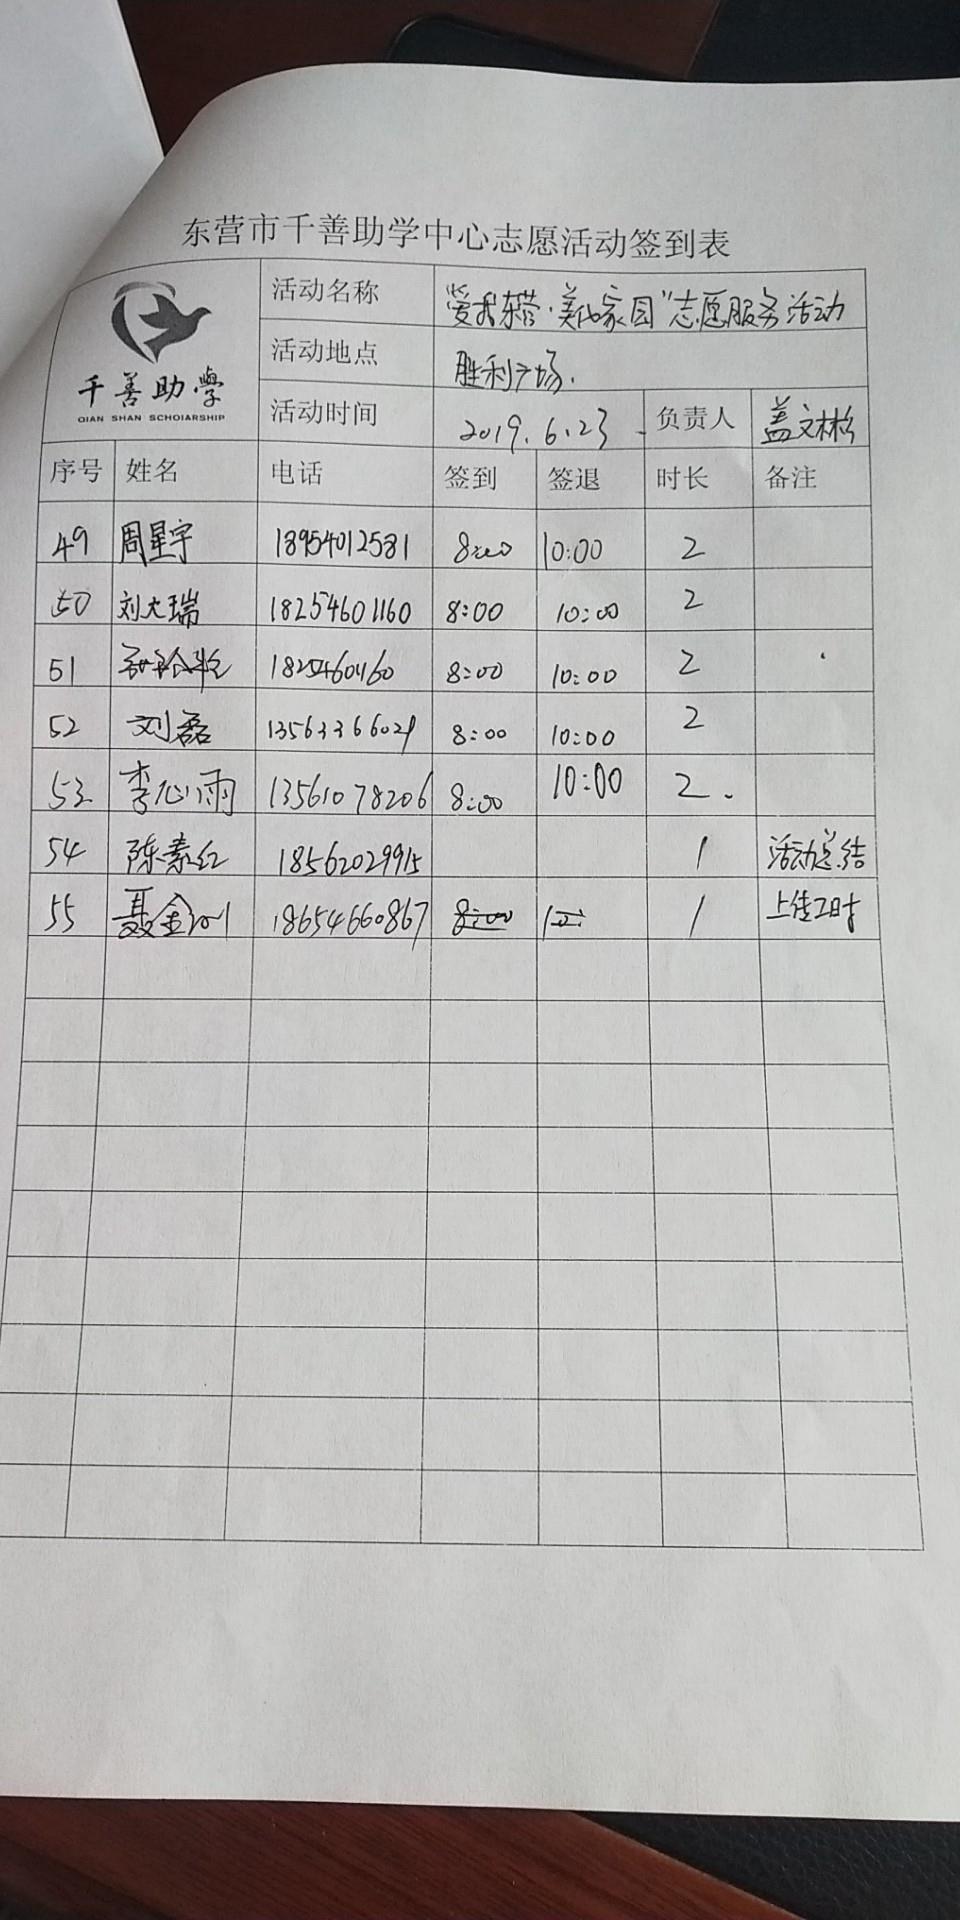 东营市千善助学中心志愿活动签到表
千善助學
QIAN SHAN SCHOIARSHIP
活动名称 "爱我东营·美化家园"志愿服务活动
活动地点 胜利广场.
活动时间 2019.6.23 负责人 盖文彬
序号 姓名 电话 签到 签退 时长 备注
49 周星宇 18954012581 8:00 10:00 2
50 刘大瑞 18254601160 8:00 10:00 2
51 8:00 10:00 2
52 刘磊 13563366029 8:00 10:00 2
53 李心雨 13561078206 8:00 10:00 2.
54 陈素红 18562029915 1 活动总结
55 聂金 18654660867 8:00 1 上传工时